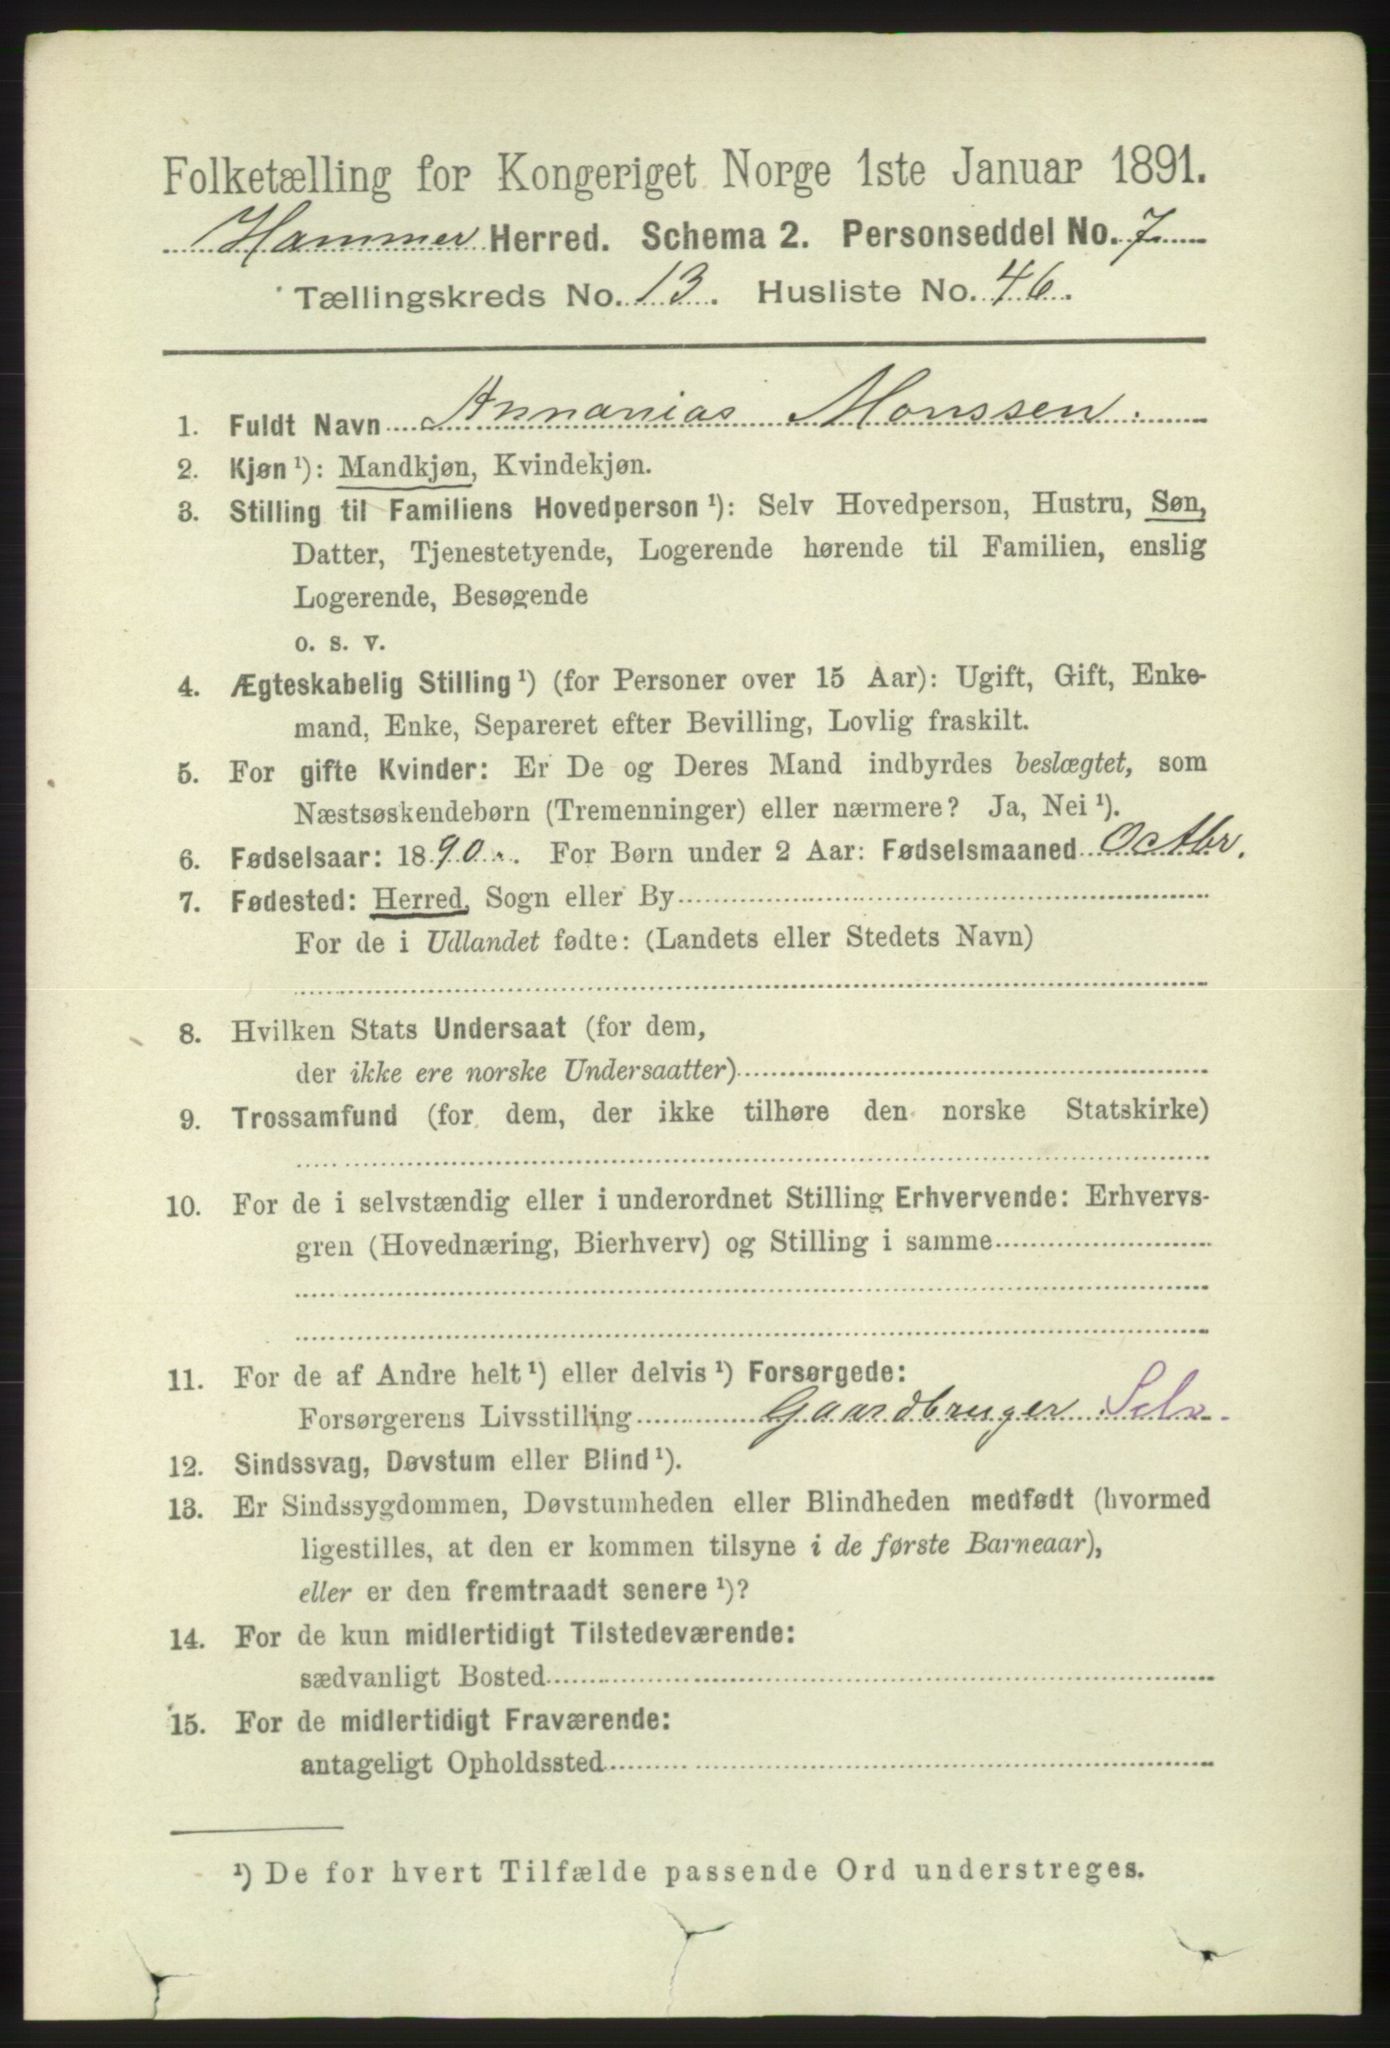 Folketælling for Kongeriget Norge 1ste Januar 1891.
Hammer Herred. Schema 2. Personseddel No. 7
Tællingskreds No. 13. Husliste No. 46.
1. Fuldt Navn Annanias Monssen.
2. Kjøn ¹): Mandkjøn, Kvindekjøn.
3. Stilling til Familiens Hovedperson ¹): Selv Hovedperson, Hustru, Søn,
Datter, Tjenestetyende, Logerende hørende til Familien, enslig
Logerende, Besøgende
o. s. v.
4. Ægteskabelig Stilling ¹) (for Personer over 15 Aar): Ugift, Gift, Enke-
mand, Enke, Separeret efter Bevilling, Lovlig fraskilt.
5. For gifte Kvinder: Er De og Deres Mand indbyrdes beslægtet, som
Næstsøskendebørn (Tremenninger) eller nærmere? Ja, Nei ¹).
6. Fødselsaar: 1890. For Børn under 2 Aar: Fødselsmaaned Octbr.
7. Fødested: Herred, Sogn eller By
For de i Udlandet fødte: (Landets eller Stedets Navn)
8. Hvilken Stats Undersaat (for dem,
der ikke ere norske Undersaatter)
9. Trossamfund (for dem, der ikke tilhøre den norske Statskirke)
10. For de i selvstændig eller i underordnet Stilling Erhvervende: Erhvervs-
gren (Hovednæring, Bierhverv) og Stilling i samme
11. For de af Andre helt ¹) eller delvis ¹) Forsørgede:
Forsørgerens Livsstilling Gaardbruger Selv.
12. Sindssvag, Døvstum eller Blind ¹).
13. Er Sindssygdommen, Døvstumheden eller Blindheden medfødt (hvormed
ligestilles, at den er kommen tilsyne i de første Barneaar),
eller er den fremtraadt senere ¹)?
14. For de kun midlertidigt Tilstedeværende:
sædvanligt Bosted
15. For de midlertidigt Fraværende:
antageligt Opholdssted
¹) De for hvert Tilfælde passende Ord understreges.